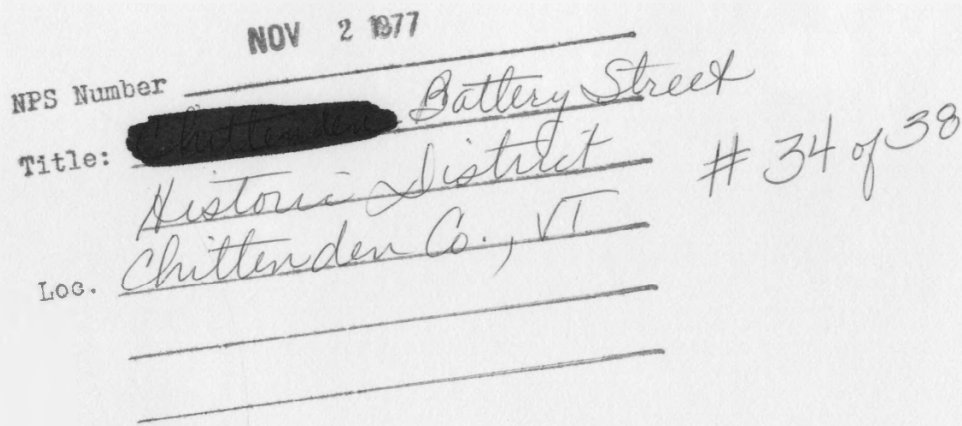 NOV 2 1977
NPS Number
Title: Chittenden Battery Street
Historic District
# 34 of 38
Loc. Chittenden Co., VT